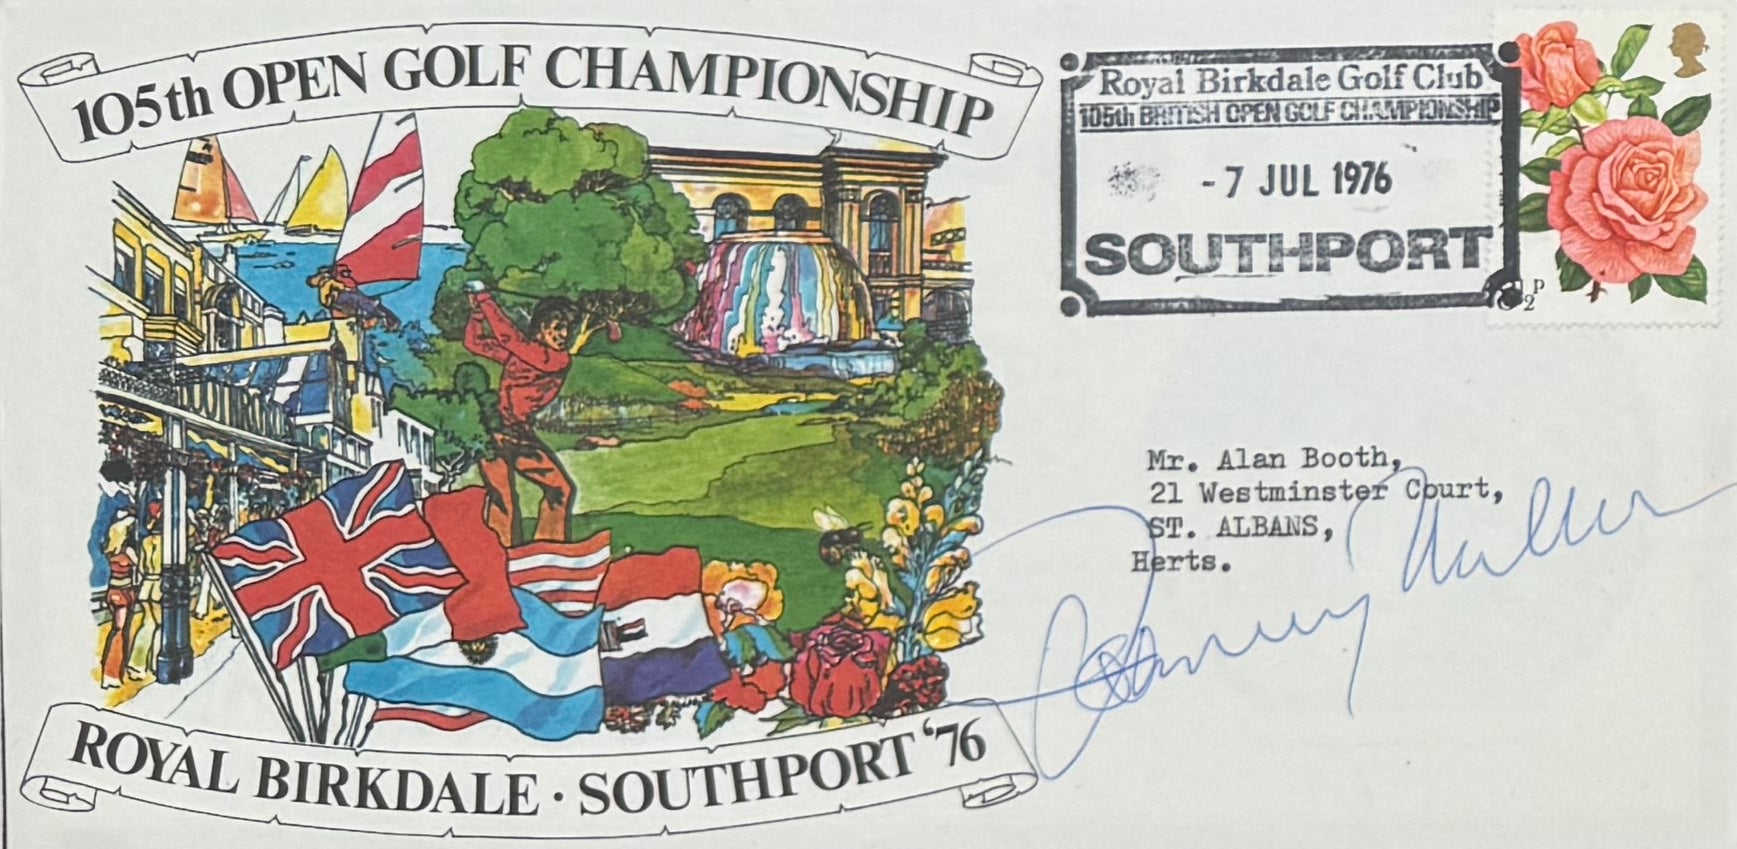 105th OPEN GOLF CHAMPIONSHIP
Royal Birkdale Golf Club
105th BRITISH OPEN GOLF CHAMPIONSHIP
-7 JUL 1976
SOUTHPORT
Mr. Alan Booth,
21 Westminster Court,
ST. ALBANS,
Herts.
Johnny Miller
ROYAL BIRKDALE · SOUTHPORT '76